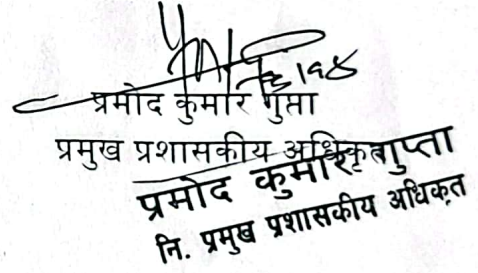 प्रमोद कुमार गुप्ता
प्रमुख प्रशासकीय अधिकृत
प्रमोद कुमार गुप्ता
नि. प्रमुख प्रशासकीय अधिकृत